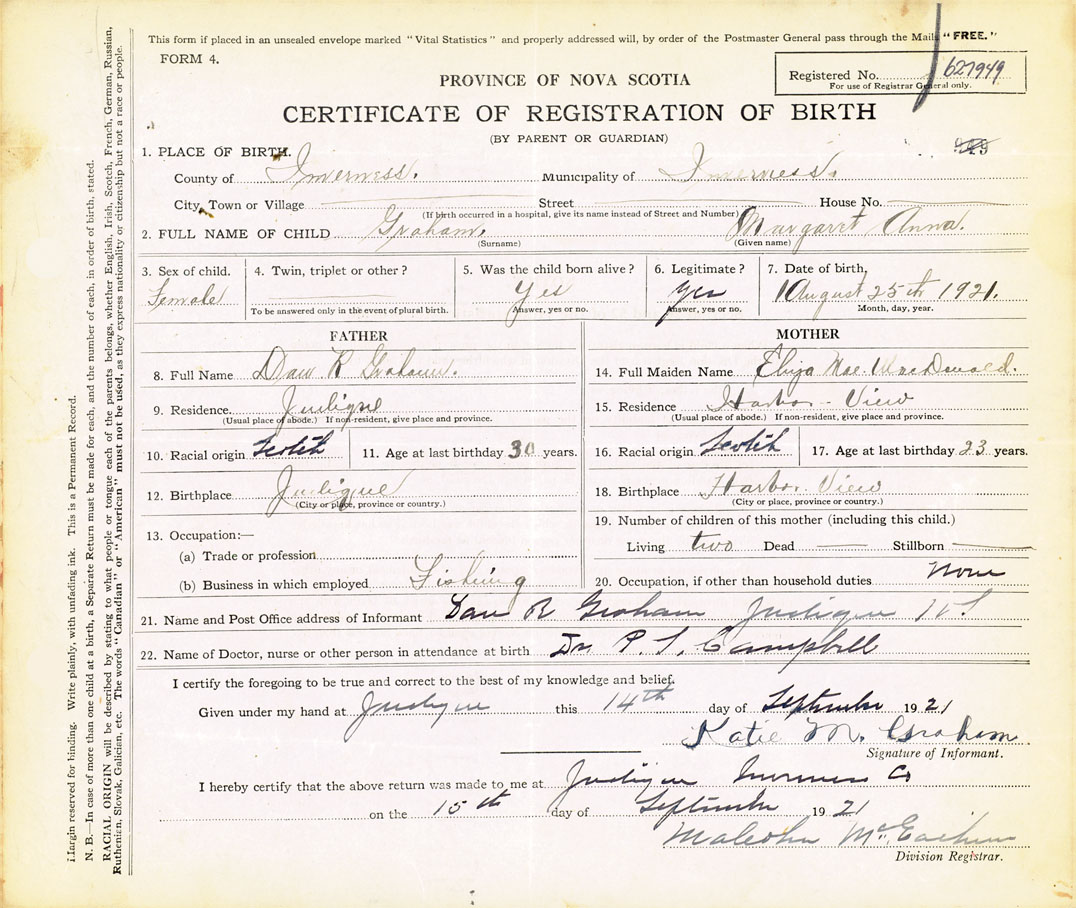 This form if placed in an unsealed envelope marked "Vital Statistics" and properly addressed will, by order of the Postmaster General pass through the Mails "FREE."
FORM 4.
Registered No. 627949
For use of Registrar General only.
PROVINCE OF NOVA SCOTIA
CERTIFICATE OF REGISTRATION OF BIRTH
(BY PARENT OR GUARDIAN)
1. PLACE OF BIRTH.
County of Inverness. Municipality of Inverness.
City, Town or Village Street House No.
(If birth occurred in a hospital, give its name instead of Street and Number)
2. FULL NAME OF CHILD Graham. Margaret Anna.
(Surname) (Given name)
3. Sex of child. 4. Twin, triplet or other? 5. Was the child born alive? 6. Legitimate? 7. Date of birth,
Female Yes Yes August 25th 1921.
To be answered only in the event of plural birth. Answer, yes or no. Answer, yes or no. Month, day, year.
FATHER
8. Full Name Dan R Graham.
9. Residence. Judique
(Usual place of abode.) If non-resident, give place and province.
10. Racial origin Scotch 11. Age at last birthday 30 years.
12. Birthplace Judique
(City or place, province or country.)
13. Occupation:—
(a) Trade or profession
(b) Business in which employed Fishing
MOTHER
14. Full Maiden Name Mae MacDonald.
15. Residence Harbor View
(Usual place of abode.) If non-resident, give place and province.
16. Racial origin Scotch 17. Age at last birthday 23 years.
18. Birthplace Harbor View
(City or place, province or country.)
19. Number of children of this mother (including this child.)
Living two Dead Stillborn
20. Occupation, if other than household duties None
21. Name and Post Office address of Informant Dan R Graham Judique N S
22. Name of Doctor, nurse or other person in attendance at birth Dr P. S. Campbell
I certify the foregoing to be true and correct to the best of my knowledge and belief.
Given under my hand at Judique this 14th day of September 1921
Katie M. Graham
Signature of Informant.
I hereby certify that the above return was made to me at Judique Inverness Co
on the 15th day of September 1921
Malcolm McEachern
Division Registrar.
Margin reserved for binding. Write plainly, with unfading ink. This is a Permanent Record.
N. B.—In case of more than one child at a birth, a Separate Return must be made for each, and the number of each, in order of birth, stated.
RACIAL ORIGIN will be described by stating to what people or tongue each of the parents belongs, whether English, Irish, Scotch, French, German, Russian,
Ruthenian, Slovak, Galician, etc. The words "Canadian" or "American" must not be used, as they express nationality or citizenship but not a race or people.